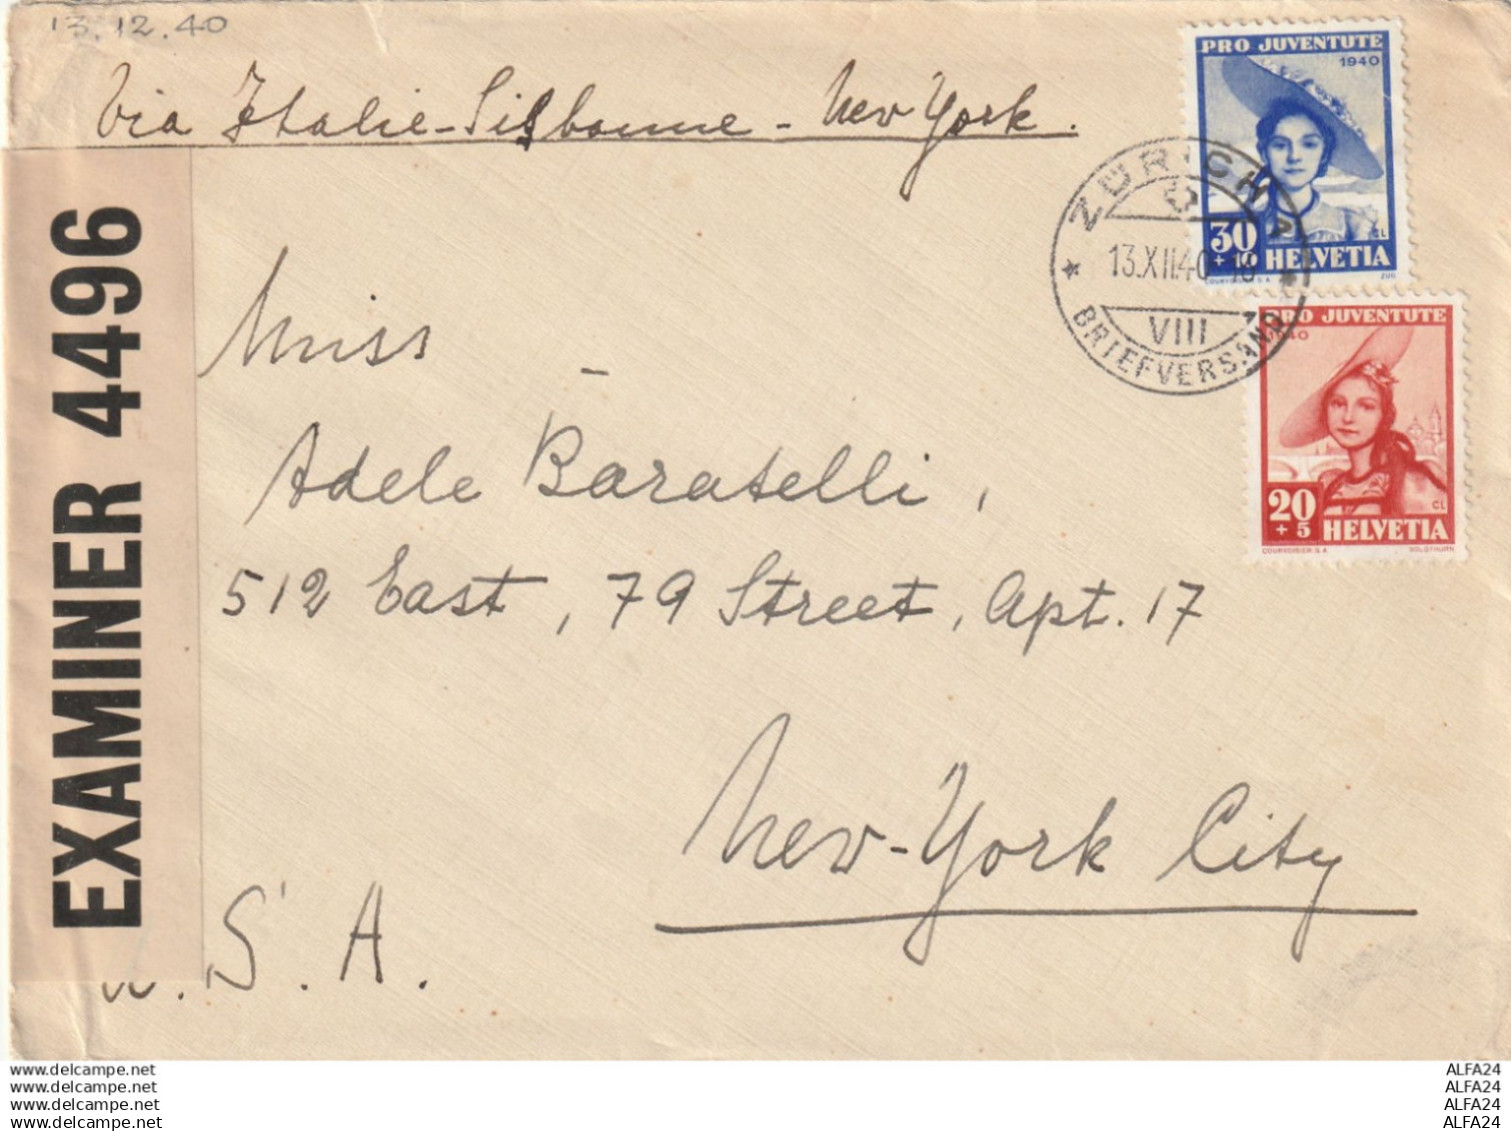 13.12.40
Via Italie - Lissbonne - New York.
PRO JUVENTUTE
1940
30
+ 10
HELVETIA
CL
COURVOISIER S.A.
ZUG
ZÜRICH 2
13.XII.40-18
VIII
BRIEFVERSAND
PRO JUVENTUTE
1940
20
+ 5
HELVETIA
CL
COURVOISIER S.A.
SOLOTHURN
EXAMINER 4496
Miss
Adele Baratelli,
512 East, 79 Street, Apt. 17
New-York City
U.S.A.
www.delcampe.net
www.delcampe.net
www.delcampe.net
www.delcampe.net
ALFA24
ALFA24
ALFA24
ALFA24